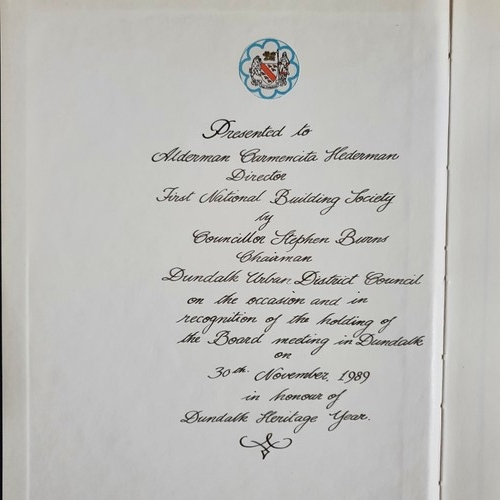 Presented to
Alderman Carmencita Hederman
Director
First National Building Society
by
Councillor Stephen Burns
Chairman
Dundalk Urban District Council
on the occasion and in
recognition of the holding of
the Board meeting in Dundalk
on
30th. November, 1989
in honour of
Dundalk Heritage Year.